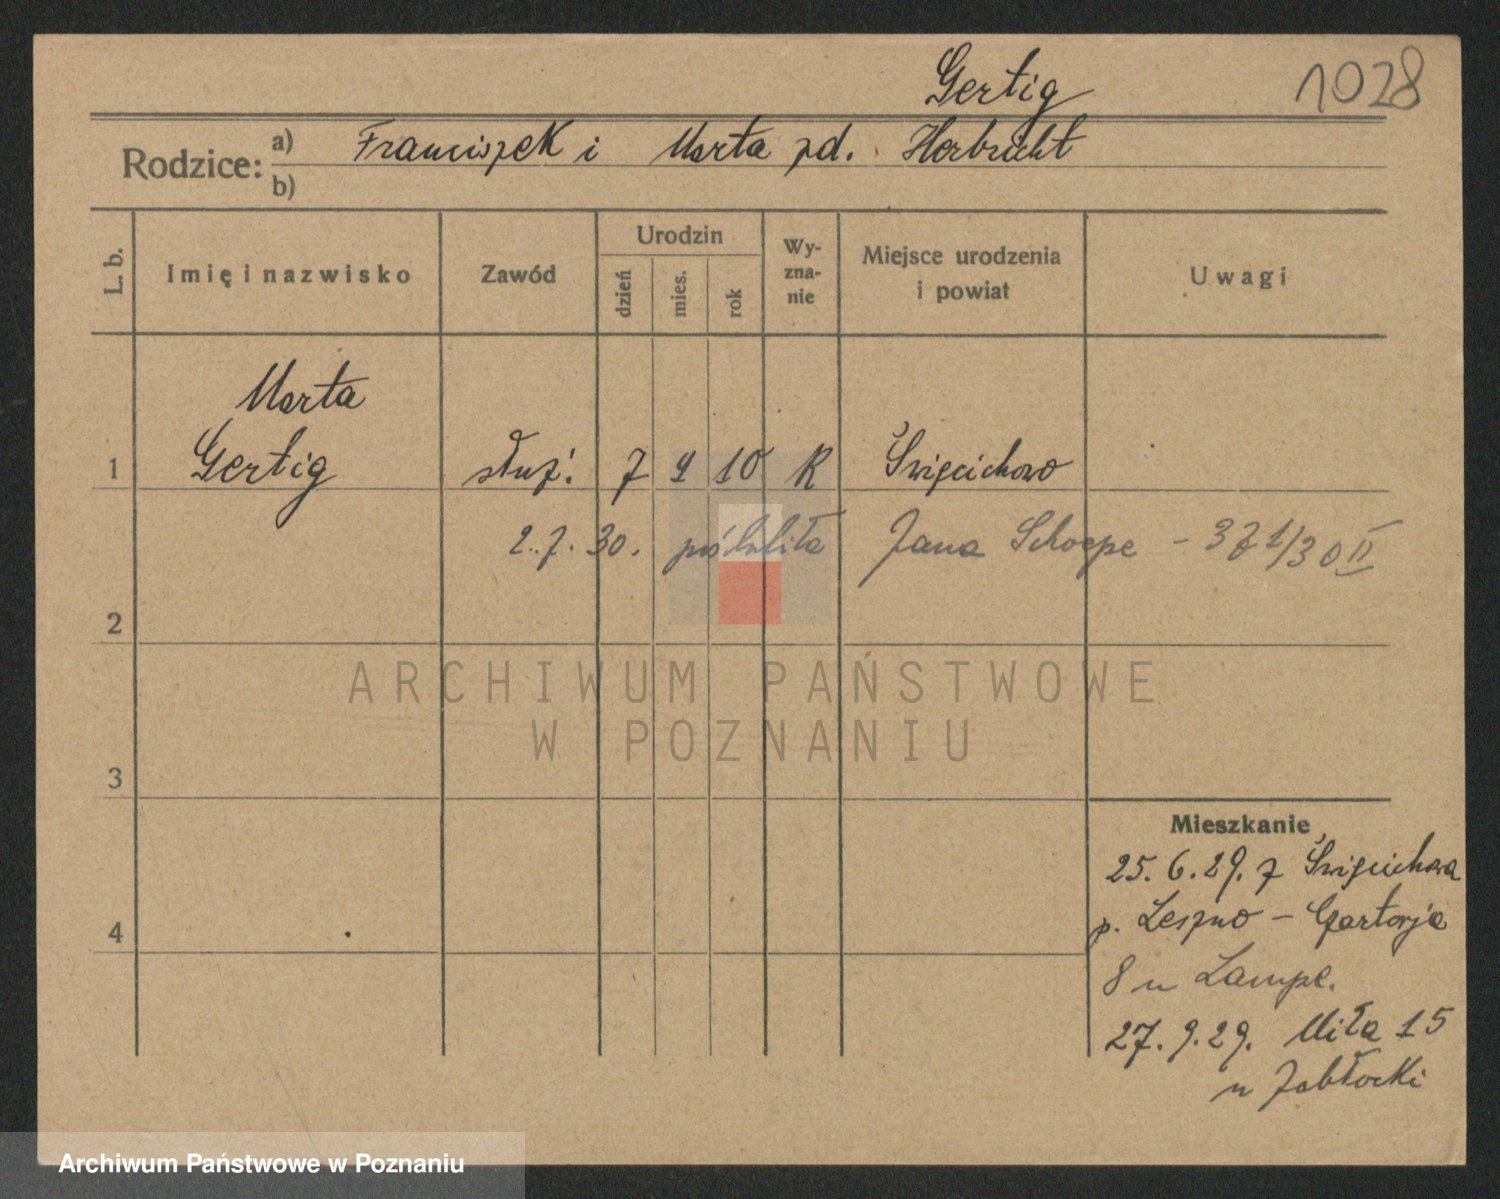 Gertig 1028
Rodzice: a) Franciszek i Marta zd. Herbricht
b)
L. b. Imię i nazwisko Zawód Urodzin dzień mies. rok Wy-zna-nie Miejsce urodzenia i powiat Uwagi
Marta
1 Gertig służ. 7 9 10 K Święcichowo
2.7.30. poślubiła Jana Schoepe - 371/30 II
2
3
4
ARCHIWUM PAŃSTWOWE
W POZNANIU
Mieszkanie
25.6.29. z Święcichowa
p. Leszno - Czartorja
8 u Lampe.
27.9.29. Miła 15
u Jabłocki
Archiwum Państwowe w Poznaniu